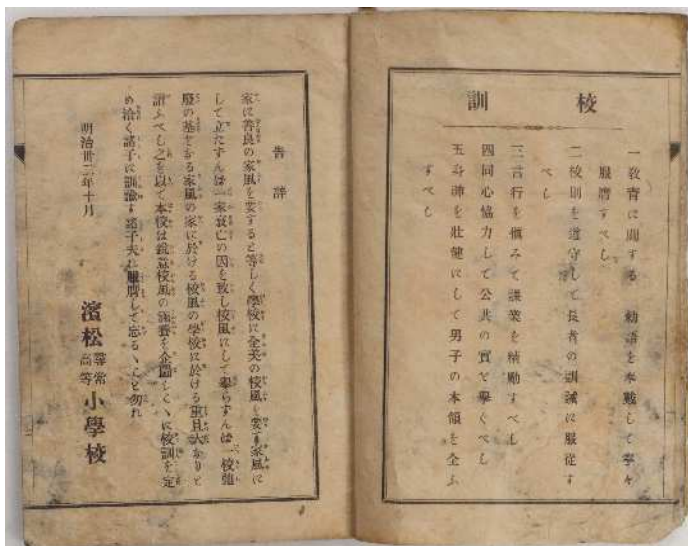 校訓
一教育に關する　勅語を奉戴して拳々
服膺すべし
二校則を遵守して長者の訓誡に服從す
べし
三言行を愼みて課業を精勵すべし
四同心協力して公共の實を擧ぐべし
五身神を壯健にして男子の本領を全ふ
すべし
告辞
家に善良の家風を要すると等しく學校に全美の校風を要す家風に
して立たずんば一家衰亡の因を致し校風にして擧らずんば一校
廢の基となる家風の家に於ける校風の學校に於ける重且大なりと
謂ふべし之を以て本校は鋭意校風の涵養を企圖しくに校訓を定
め洽く諸子に訓諭す諸子夫れ服膺して忘るゝこと勿れ
明治卅二年十月
濱松尋常高等小學校